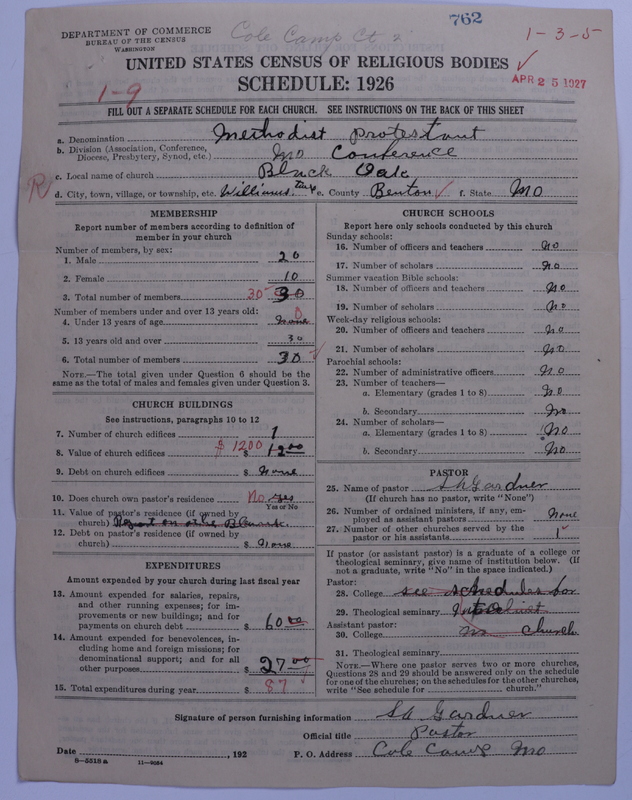 762
DEPARTMENT OF COMMERCE
BUREAU OF THE CENSUS
WASHINGTON
Cole Camp Ct 2
1-3-5
UNITED STATES CENSUS OF RELIGIOUS BODIES
SCHEDULE: 1926
APR 25 1927
1-9
FILL OUT A SEPARATE SCHEDULE FOR EACH CHURCH. SEE INSTRUCTIONS ON THE BACK OF THIS SHEET
a. Denomination Methodist Protestant
b. Division (Association, Conference, Diocese, Presbytery, Synod, etc.) Mo Conference
c. Local name of church Black Oak
R
d. City, town, village, or township, etc. Williams twp e. County Benton f. State Mo
MEMBERSHIP
Report number of members according to definition of
member in your church
Number of members, by sex:
1. Male 20
2. Female 10
3. Total number of members 30 30
Number of members under and over 13 years old:
4. Under 13 years of age None 0
5. 13 years old and over 30
6. Total number of members 30
NOTE.—The total given under Question 6 should be the
same as the total of males and females given under Question 3.
CHURCH BUILDINGS
See instructions, paragraphs 10 to 12
7. Number of church edifices 1
8. Value of church edifices $1200 $ 1200
9. Debt on church edifices $ None
10. Does church own pastor's residence No yes
Yes or No
11. Value of pastor's residence (if owned by
church) Report on other Blank
12. Debt on pastor's residence (if owned by
church) $ None
EXPENDITURES
Amount expended by your church during last fiscal year
13. Amount expended for salaries, repairs,
and other running expenses; for im-
provements or new buildings; and for
payments on church debt $ 60 00
14. Amount expended for benevolences, in-
cluding home and foreign missions; for
denominational support; and for all
other purposes $ 27 00
15. Total expenditures during year $ 87
CHURCH SCHOOLS
Report here only schools conducted by this church
Sunday schools:
16. Number of officers and teachers No
17. Number of scholars No
Summer vacation Bible schools:
18. Number of officers and teachers No
19. Number of scholars No
Week-day religious schools:
20. Number of officers and teachers No
21. Number of scholars No
Parochial schools:
22. Number of administrative officers No
23. Number of teachers—
a. Elementary (grades 1 to 8) No
b. Secondary No
24. Number of scholars—
a. Elementary (grades 1 to 8) No
b. Secondary No
PASTOR
25. Name of pastor S A Gardner
(If church has no pastor, write "None")
26. Number of ordained ministers, if any, em-
ployed as assistant pastors None
27. Number of other churches served by the
pastor or his assistants 1
If pastor (or assistant pastor) is a graduate of a college or
theological seminary, give name of institution below. (If
not a graduate, write "No" in the space indicated.)
Pastor:
28. College see schedules for
29. Theological seminary
Assistant pastor:
30. College church
31. Theological seminary
NOTE.—Where one pastor serves two or more churches,
Questions 28 and 29 should be answered only on the schedule
for one of the churches; on the schedules for the other churches,
write "See schedule for church."
Signature of person furnishing information S A Gardner
Official title Pastor
Date , 192 P. O. Address Cole Camp Mo
8-5518a 11-9564